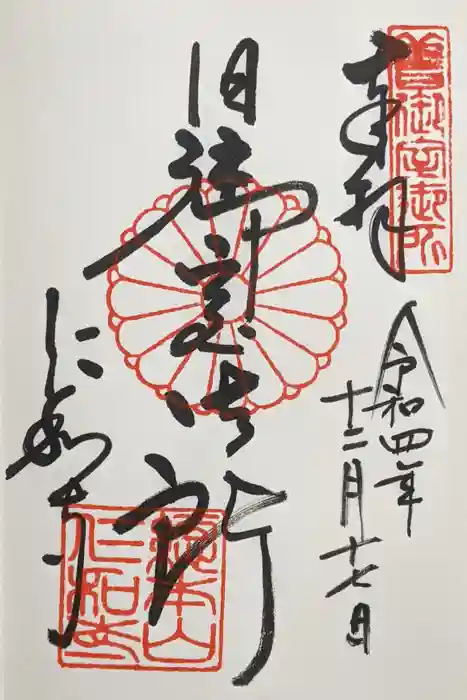 舊御室御所
奉拝
令和四年
十二月十七日
旧御室御所
仁和寺
總本山
仁和寺